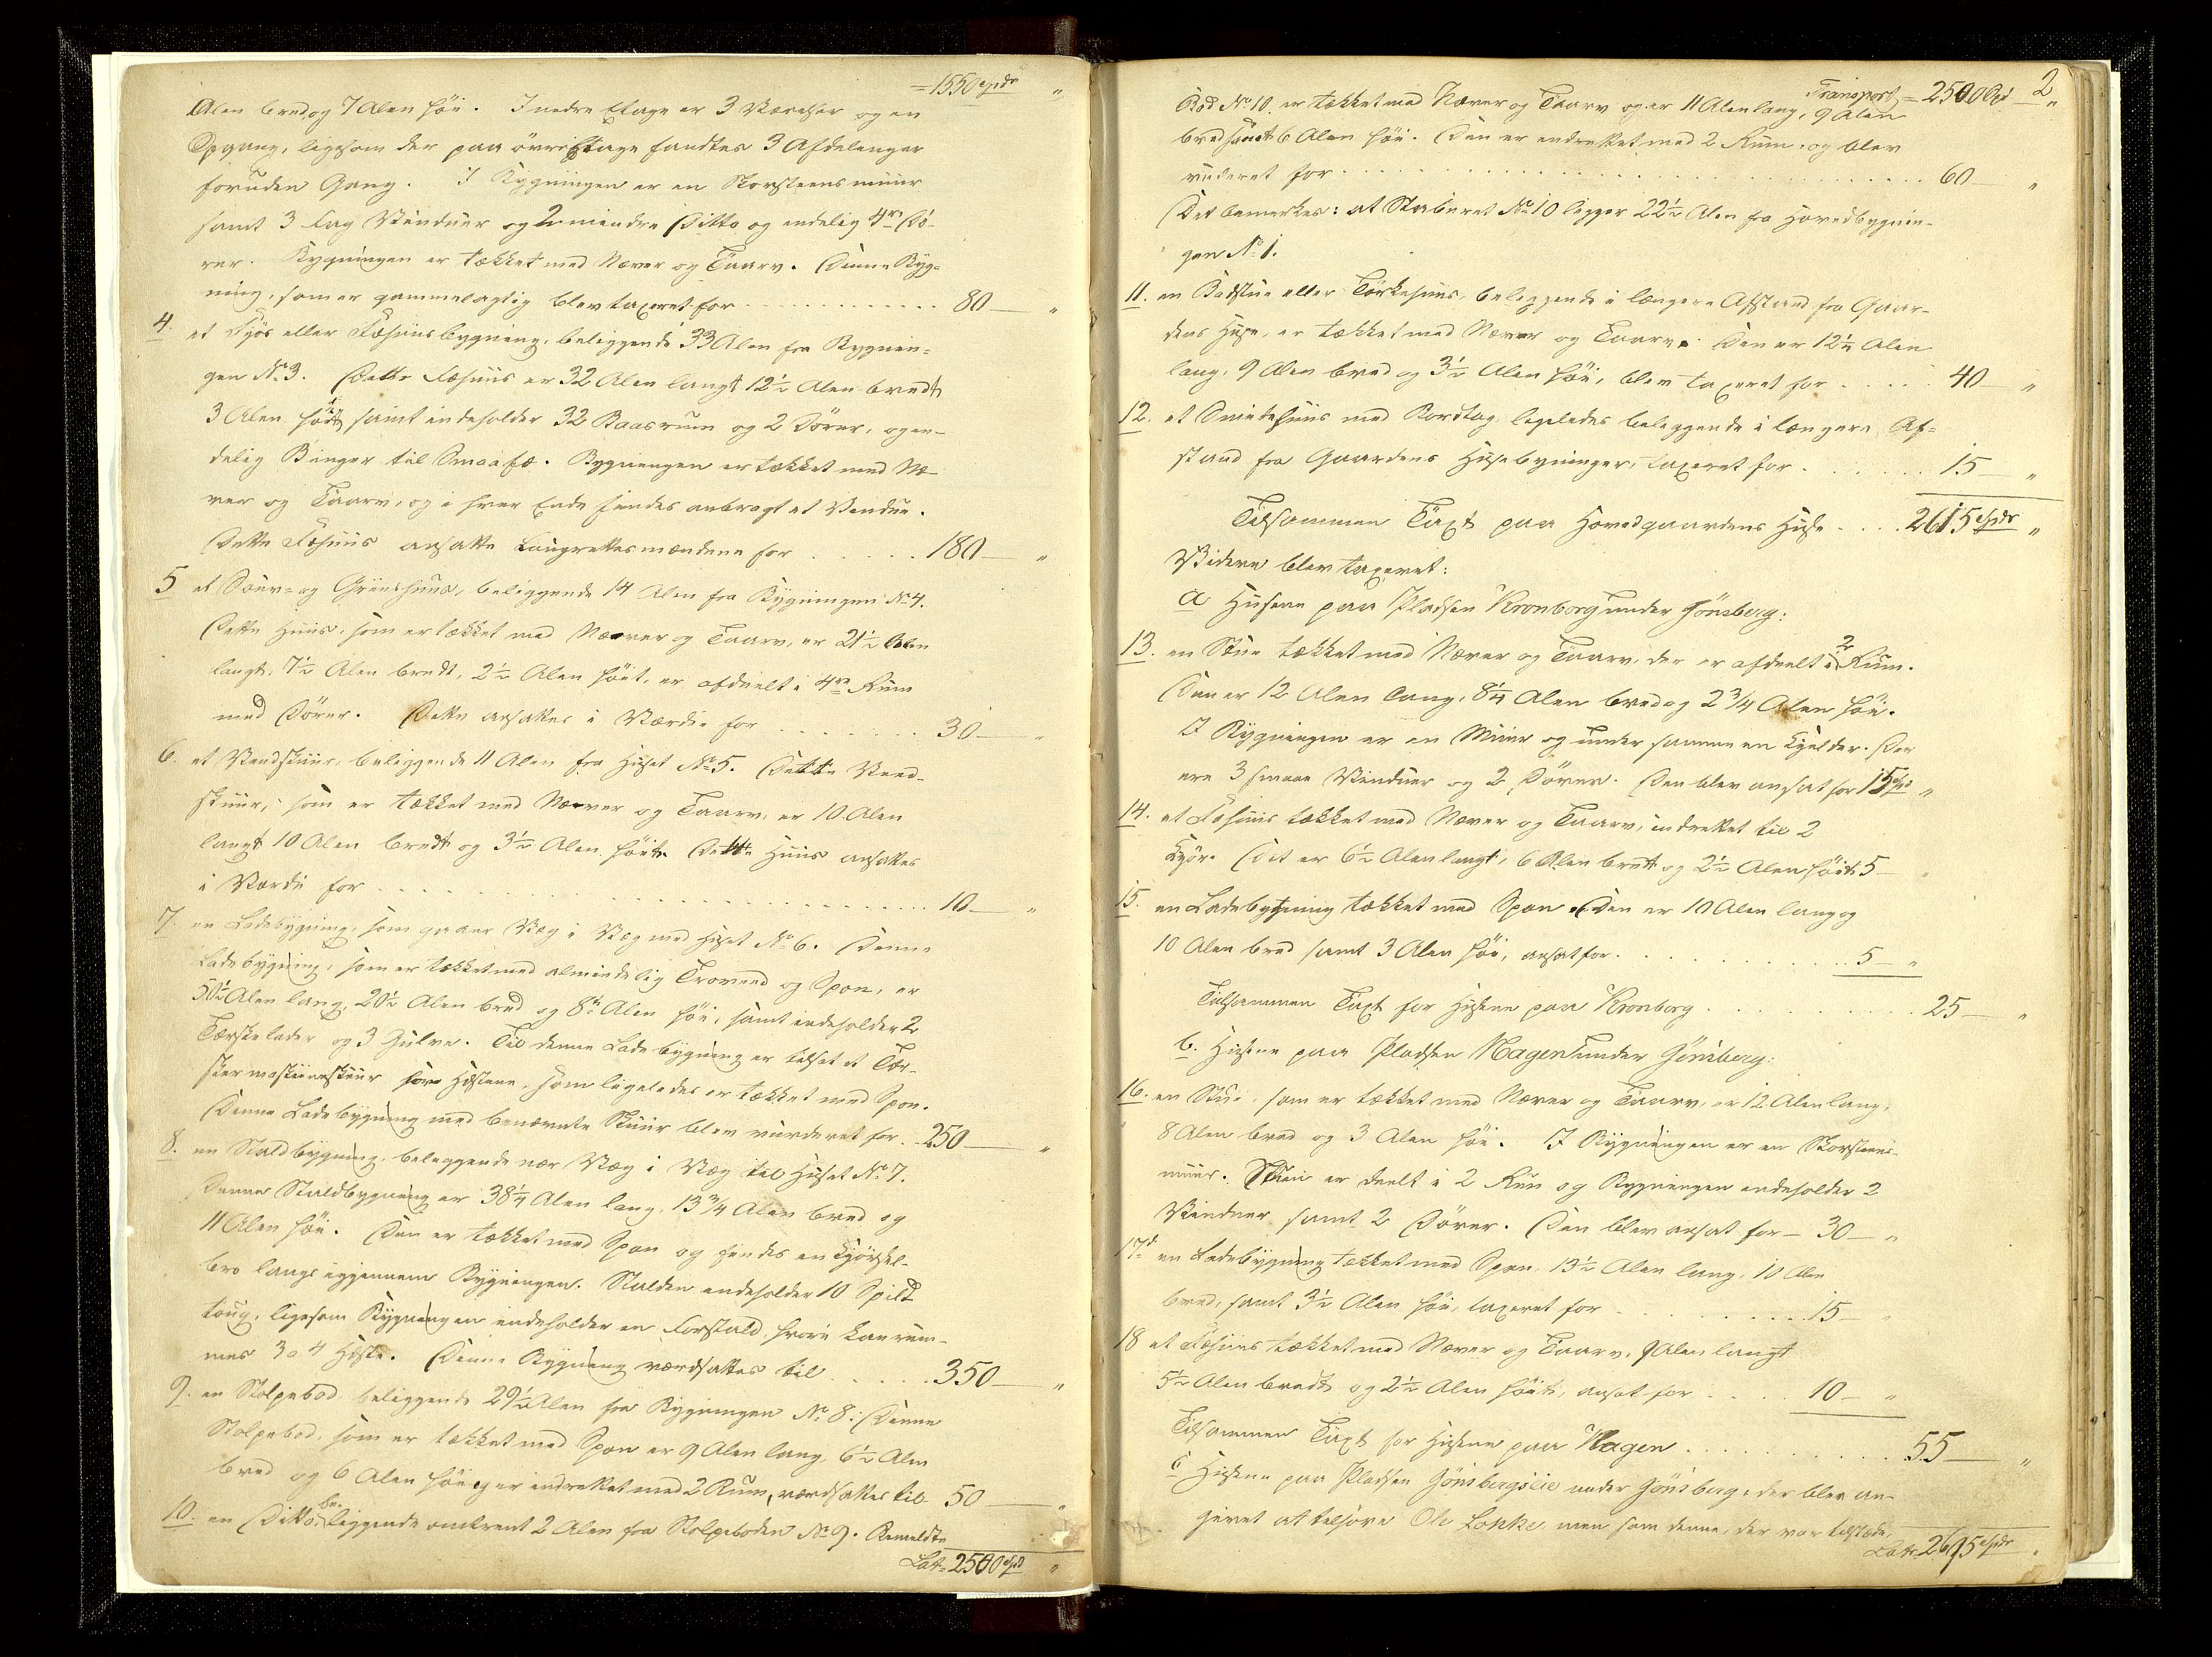 = 1550 Spdr "
Alen bred og 7 Alen høi. I nedre Etage er 3 Værelser og en
Opgang, ligesom der paa övre Etage fandtes 3 Afdelinger
foruden Gang. I Bygningen er en Skorsteensmuur
samt 3 Fag Vinduer og 2 mindre Ditto og endelig 4re Dö-
rer. Bygningen er tækket med Næver og Taarv. Denne Byg-
ning, som er gammelagtig blev taxeret for 80 — "
4. et Fjös eller Fæhuusbygning, beliggende 33 Alen fra Bygnin-
gen No 3. Dette Fæhuus er 32 Alen langt 12½ Alen bredt
3 Alen höit samt indeholder 32 Baasrum og 2 Dörer, og en-
delig Binger til Smaafæ. Bygningen er tækket med Næ-
ver og Taarv, og i hver Ende findes anbragt et Vindue.
Dette Fæhuus ansatte Laugrettesmændene for 180 — "
5 et Souv- og Griisehuus, beliggende 14 Alen fra Bygningen No 4.
Dette Huus, som er tækket med Næver og Taarv, er 21½ Alen
langt, 7½ Alen bredt, 2½ Alen höit, er afdeelt i 4re Rum
med Dörer. Dette ansattes i Værdie for 30 — "
6. et Vedskuur, beliggende 11 Alen fra Huset No 5. Dette Veed-
skuur, som er tækket med Næver og Taarv, er 10 Alen
langt 10 Alen bredt og 3½ Alen höit. Dette Huus ansattes
i Værdi for 10 — "
7 en Ladebygning, som gaaer Væg i Væg med Huset No 6. Denne
Ladebygning, som er tækket med almindelig Troved og Spon, er
50½ Alen lang, 20½ Alen bred og 8½ Alen höi, samt indeholder 2
Tærskelader og 3 Gulve. Til denne Ladebygning er tilsat et Tær-
skemaskineskuur for Hestene, som ligeledes er tækket med Spon.
Denne Ladebygning med benævnte Skuur blev vurderet for 250 — "
8. en Staldbygning, beliggende nær Væg i Væg til Huset No 7.
Denne Staldbygning er 38¼ Alen lang, 13¾ Alen bred og
11 Alen höi. Den er tækket med Spon og findes en Kjörsel-
bro langs igjennem Bygningen. Stalden indeholder 10 Spild
toug, ligesom Bygningen indeholder en Forstald, hvori kan rum-
mes 3 a 4 Heste. Denne Bygning værdsattes til 350 — "
9. en Stolpebod beliggende 29½ Alen fra Bygningen No 8. Denne
Stolpebod, som er tækket med Spon er 9 Alen lang, 6½ Alen
bred og 6 Alen höi og er indrettet med 2 Rum, værdsattes til 50 — "
10. en Ditto, beliggende omtrent 2 Alen fra Stolpeboden No 9. Bemeldte
Lat. 2500 Spd "
Transport = 2500 Spd " 2
Bod No 10. er tækket med Næver og Taarv og er 11 Alen lang, 9 Alen
bred samt 6 Alen höi. Den er indrettet med 2 Rum, og blev
vuderet for 60 — "
Det bemerkes: at Staburet No 10 ligger 22½ Alen fra Hovedbygnin-
gen No 1.
11. en Badstue eller Törkehuus, beliggende i længere Afstand fra Gaar-
dens Huse, er tækket med Næver og Taarv. Den er 12¼ Alen
lang, 9 Alen bred og 3½ Alen höi, blev taxeret for 40 — "
12. et Smidehuus med Bordtag, ligeledes beliggende i længere Af-
stand fra Gaardens Husebygninger, taxeret for 15 — "
Tilsammen Taxt paa Hovedgaardens Huse 2615 Spdr "
Videre blev taxeret:
a Husene paa Pladsen Kronborg under Gönsberg:
13. en Stue tækket med Næver og Taarv, der er afdeelt i 2 Rum.
Den er 12 Alen lang, 8¼ Alen bred og 2¾ Alen höi.
I Bygningen er en Muur og under samme en Kjelder. Der
ere 3 smaae Vinduer og 2 Dörer. Den blev ansat for 15 Spd "
14. et Fæhuus tækket med Næver og Taarv, indrettet til 2
Kjör. Det er 6½ Alen langt, 6 Alen bredt og 2½ Alen höit 5 — "
15. en Ladebygning tækket med Spon. Den er 10 Alen lang og
10 Alen bred samt 3 Alen höi, ansat for 5 — "
Tilsammen Taxt for Husene paa Kronborg 25 — "
b. Husene paa Pladsen Hagen under Gönsberg:
16. en Stue, som er tækket med Næver og Taarv, er 12 Alen lang,
8 Alen bred og 3 Alen höi. I Bygningen er en Skorsteens-
muur. Stuen er deelt i 2 Rum og Bygningen indeholder 2
Vinduer samt 2 Dörer. Den blev ansat for — 30 — "
17d en Ladebygning tækket med Spon, 13½ Alen lang, 10 Alen
bred, samt 3½ Alen höi, taxeret for 15 — "
18 et Fæhuus tækket med Næver og Taarv, 9 Alen langt
5½ Alen bredt og 2½ Alen höit, ansat for 10 — "
Tilsammen Taxt for Husene paa Hagen 55 — "
c Husene paa Pladsen Gönsbergseie under Gönsberg, der blev an-
givet at tilhöre Ole Løkke men som denne, der var tilstæde,
Lat. 2695 Spdr "